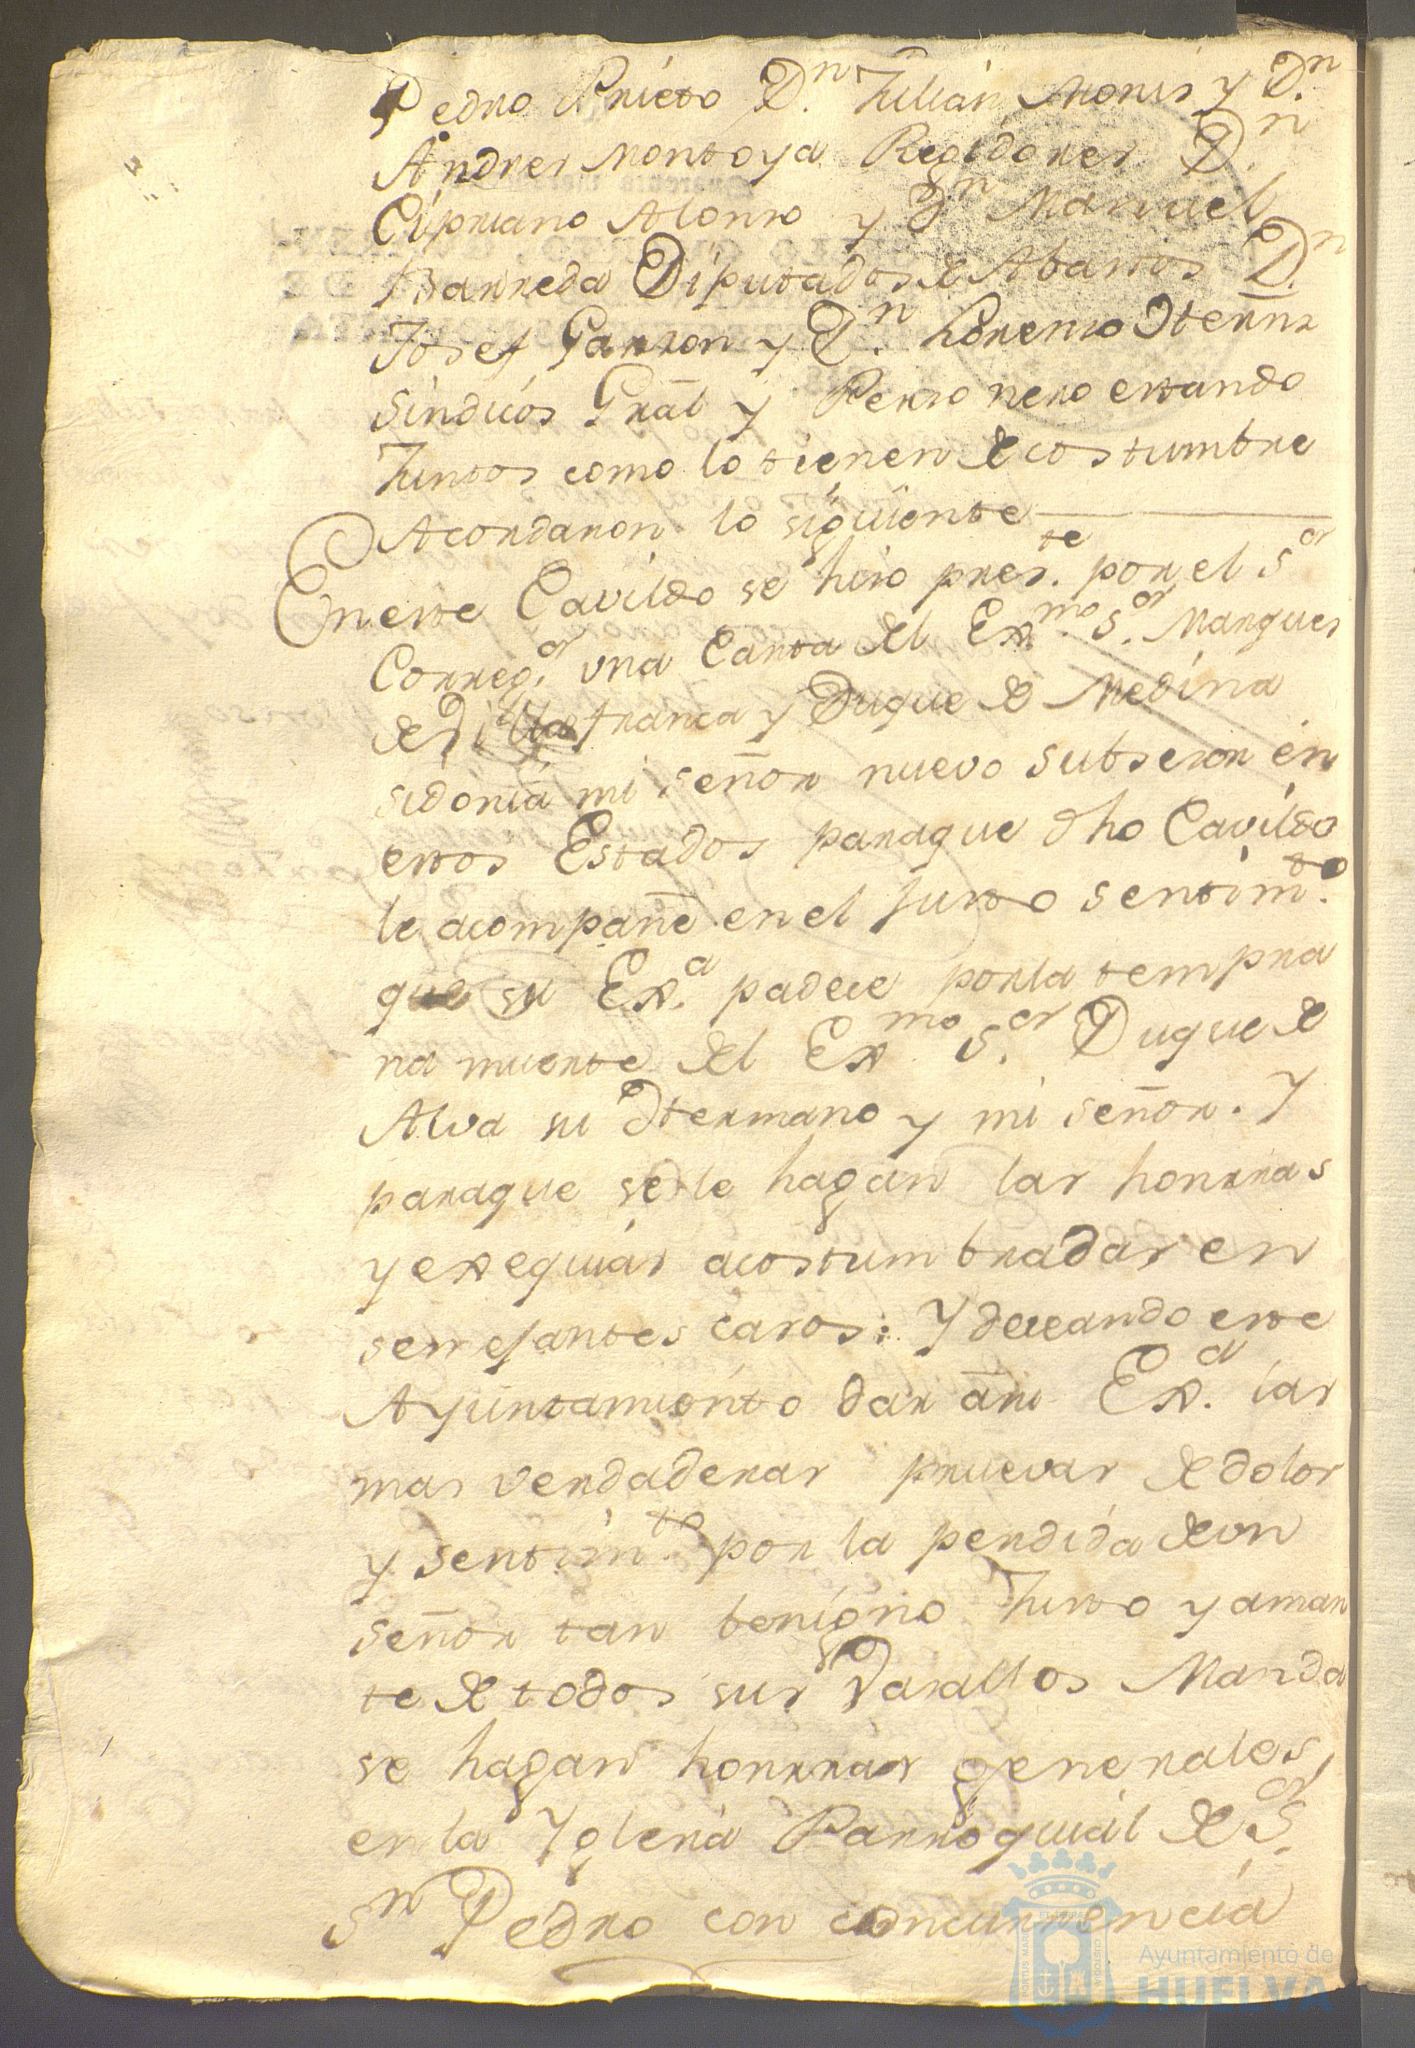 Pedro Prieto Dn. Julián Monis y Dn.
Andres Montoya Regidores Dn.
Cipriano Alonso y Dn Manuel
Barreda Diputados de Abastos Dn.
Josef Garzon y Dn. Lorenzo Hernz
Sindicos Gral y Personero estando
Juntos como lo tienen de costumbre
Acordaron lo siguiente
En este Cavildo se hizo preste. por el Sor
Correg.or una Carta del Exmo. Sor. Marques
de Villafranca y Duque de Medina
sidonia mi señor nuevo subsesor en
estos Estados paraque dho Cavildo
le acompañe en el justo sentimto.
que su Exa. padece por la tempra
na muerte del Exmo Sor. Duque de
Alva su Hermano y mi señor. Y
paraque se le hagan las honrras
y exequias acostumbradas en
semejantes casos: Y deceando este
Ayuntamiento dar a su Exa. las
mas verdaderas pruevas de dolor
y sentimto. por la perdida de un
señor tan benigno Justo y aman
te de todos sus Vasallos Manda
se hagan honrras generales,
en la Yglesia Parroquial de Sor.
Sn Pedro con concurrencia
Ayuntamiento de
HUELVA